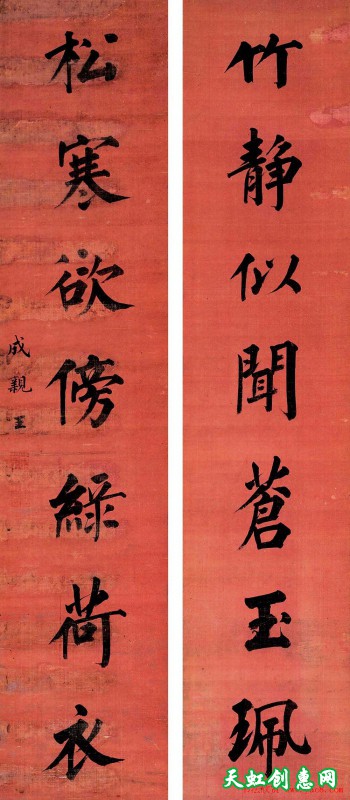 竹静似聞蒼玉珮
松寒欲傍緑荷衣
成親王
天虹创惠网